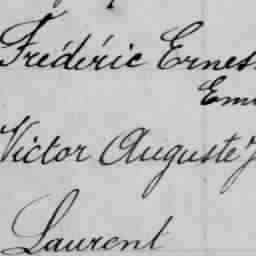 Frédéric Ernes
Em
Victor Auguste J
Laurent